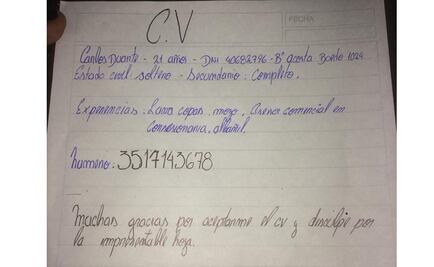 C.V
FECHA
Carlos Duarte - 21 años - DNI 40682796 - Bº acosta Bordo 1024
Estado civil soltero - Secundario: Completo.
Experiencias: Lava copas, mozo, Asesor comercial en
Consecionaria, albañil.
Numero: 3517143678
Muchas gracias por aceptarme el cv y disculpe por
la impresentable hoja.